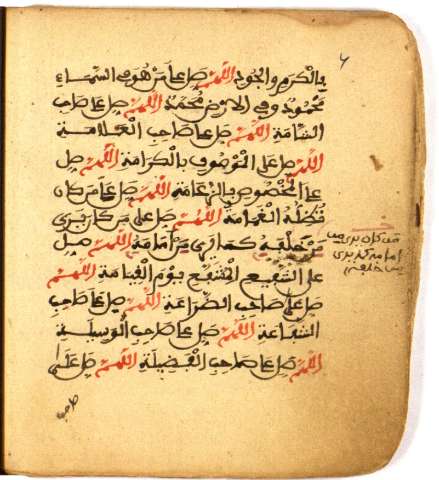 ٦
بالكرم والجود اللهم صل على من هو في السماء
محمود وفي الارض محمد اللهم صل على صاحب
الشامة اللهم صل على صاحب العلامة
اللهم صل على الموصوف بالكرامة اللهم صل
على المخصوص بالزعامة اللهم صل على من كان
تظله الغمامة اللهم صل على من كان يرى
من خلفه كما يرى من أمامه اللهم صل
على الشفيع المشفع يوم القيامة اللهم
صل على صاحب الضراعة اللهم صل على صاحب
الشفاعة اللهم صل على صاحب الوسيلة
اللهم صل على صاحب الفضيلة اللهم صل على
صاحب
من كان يرى من
امامه كما يرى
من خلفه